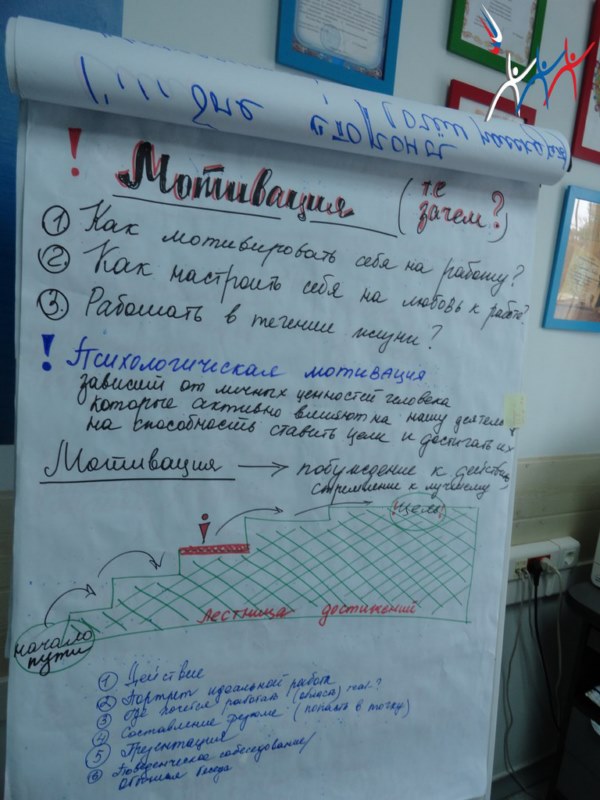 ! Мотивация (т.е зачем?)
① Как мотивировать себя на работу?
② Как настроить себя на любовь к работе?
③. Работать в течении жизни?
! Психологическая мотивация
зависит от личных ценностей человека
которые активно влияют на нашу
на способность ставить цели и достигать их
Мотивация → побуждение к действию
стремление к лучшему
цель
лестница достижений
начало
пути
① Действие
② Портрет идеальной работы
③ Где хочется работать
④ Составление резюме (попасть в точку)
⑤ Презентация
⑥ Поведенческое собеседование/
беседа